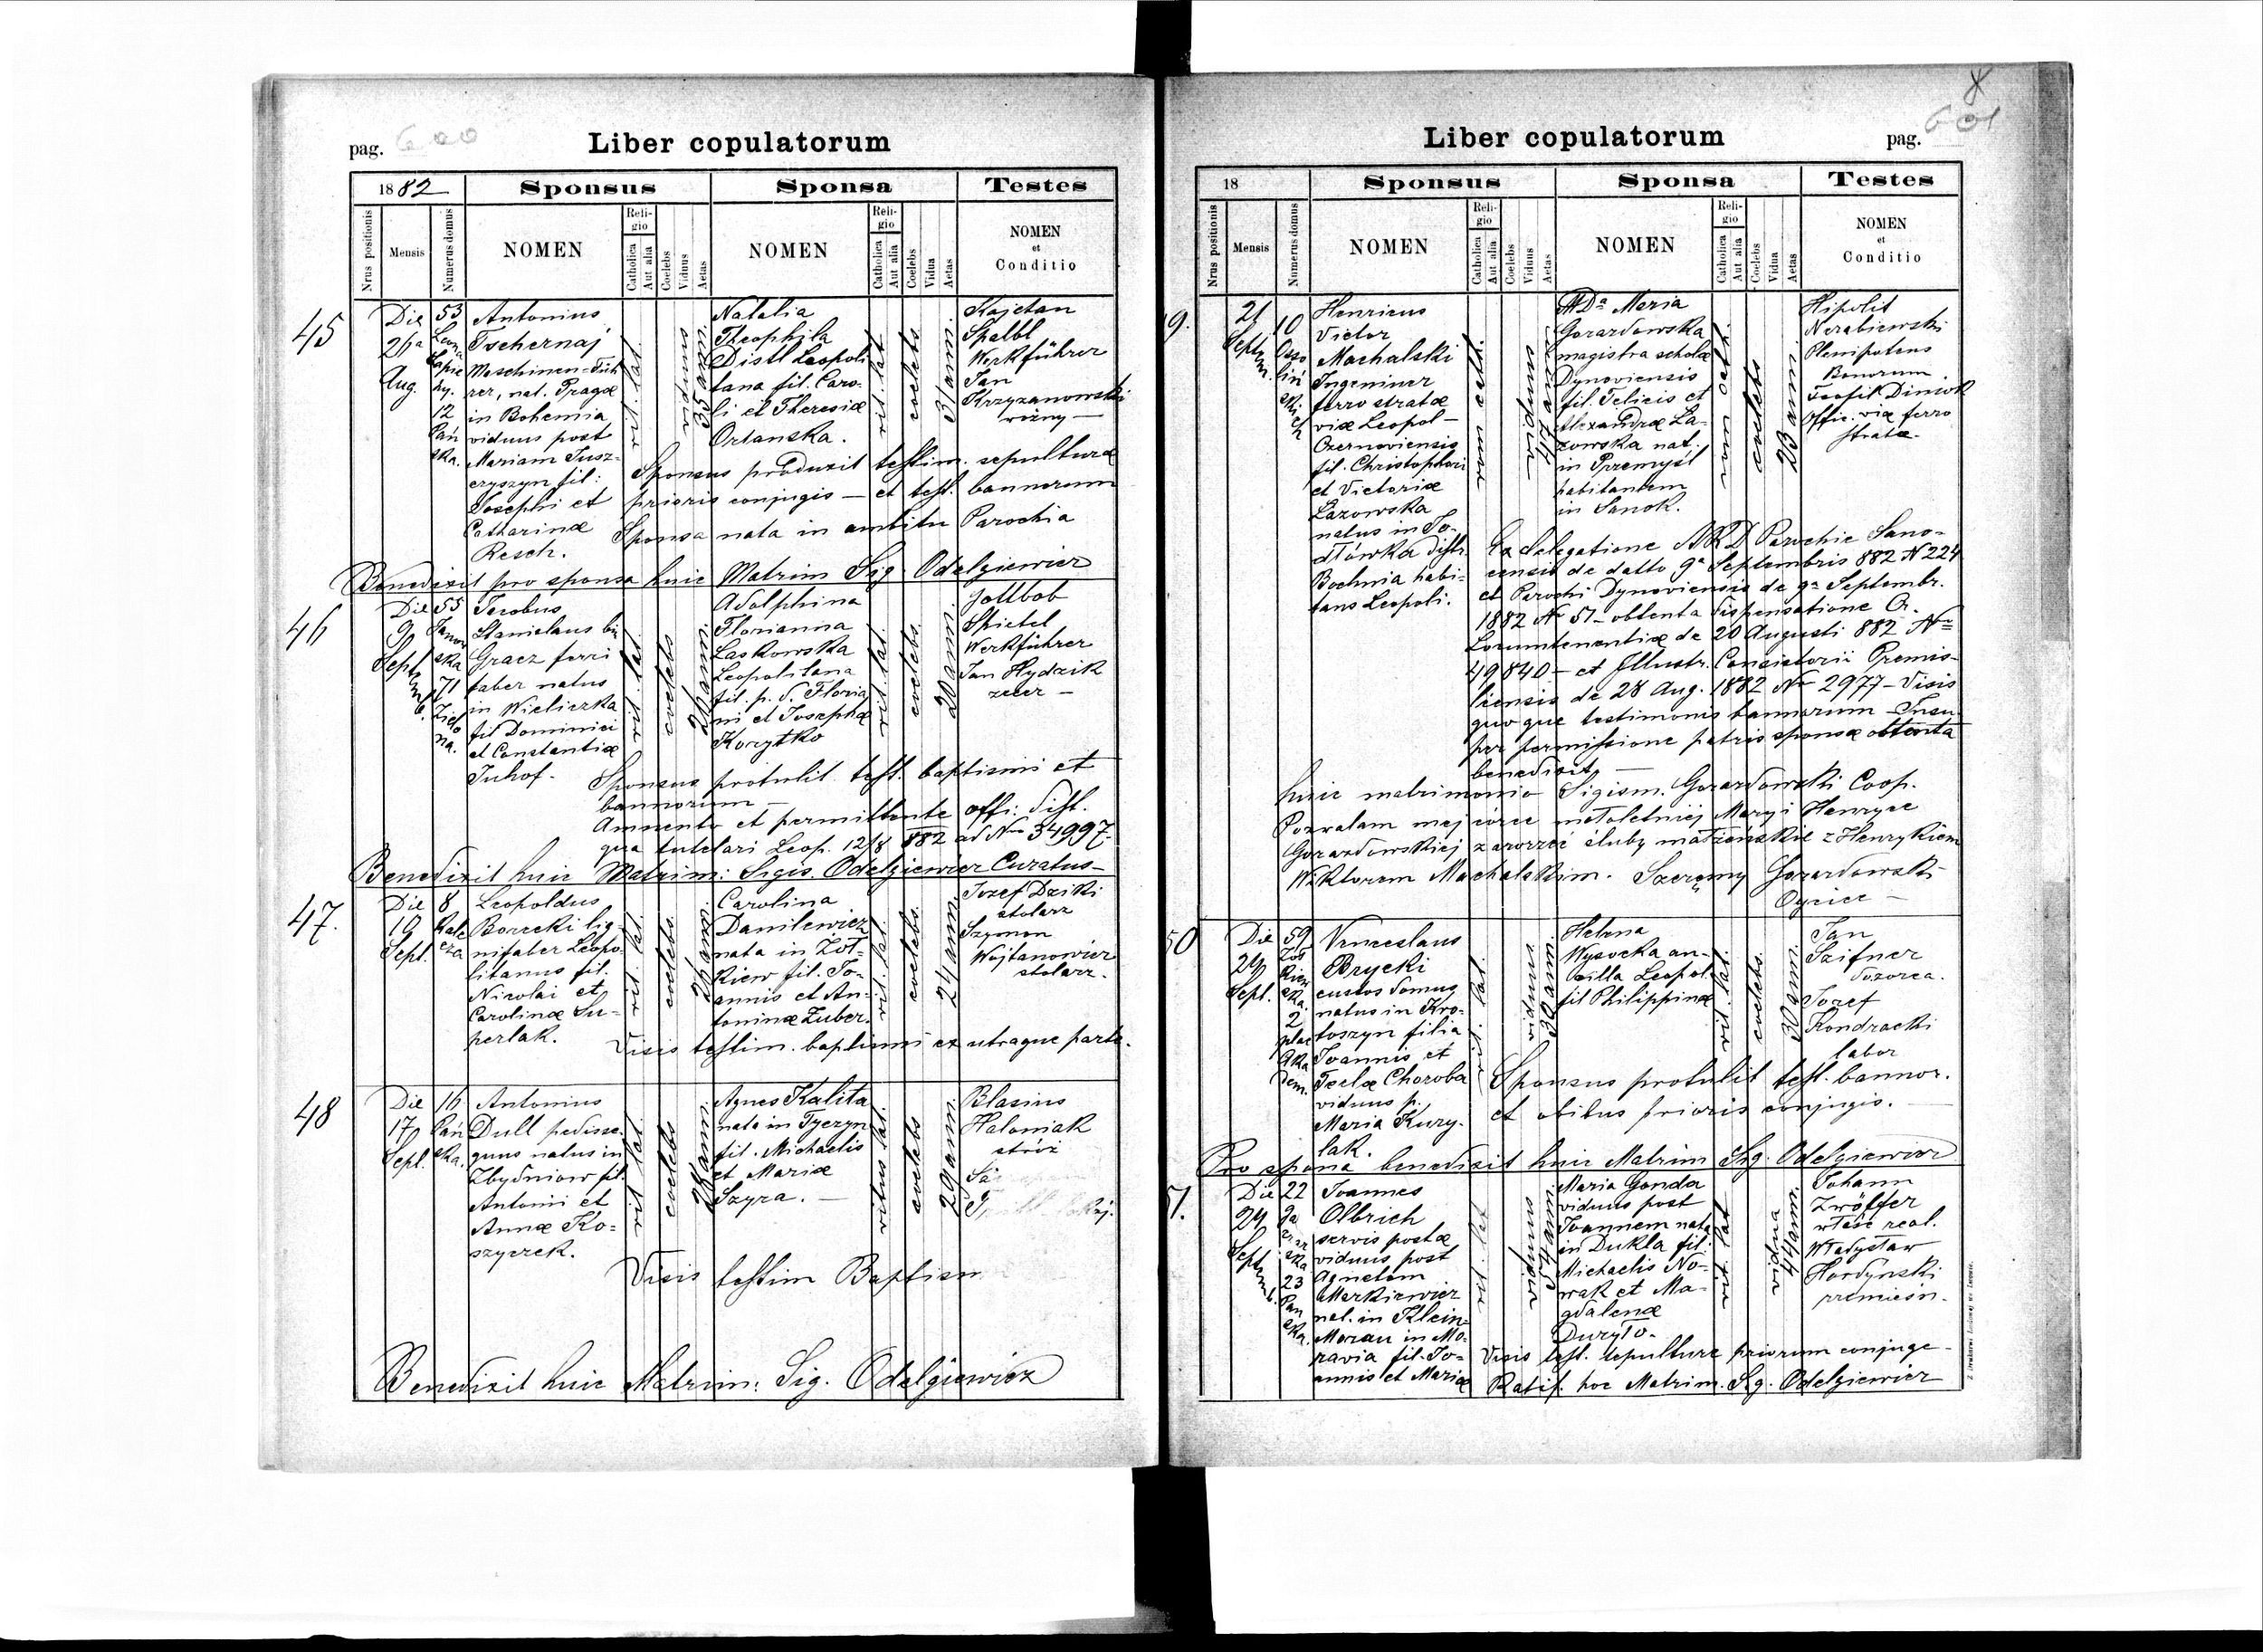 pag. 600
Liber copulatorum
1882
Sponsus
Sponsa
Testes
Nrus positionis
Mensis
Numerus domus
NOMEN
Religio
Catholica
Aut alia
Coelebs
Viduus
Aetas
NOMEN
Religio
Catholica
Aut alia
Coelebs
Vidua
Aetas
NOMEN
et
Conditio
45
Die
21a
Aug.
53
Leona
Sapie
hy.
12
Pań
ska.
Antonius
Tschernaj
Maschinen-Füh
rer, nat. Pragæ
in Bohemia
viduus post
Mariam Jusz-
cryszyn fil:
Josephi et
Catharinæ
Resch.
rit. lat.
viduus
35 anni
Natalia
Theophila
Distl Leopoli
tana fil. Caro-
li et Theresiæ
Orlanska.
rit. lat.
coelebs
31 ann.
Kajetan
Spalbl
Werkführer
Jan
Krzyzanowski
woźny —
Sponsus produxit testim. sepulturæ
prioris conjugis — et test. bannorum
Sponsa nata in ambitu Parochia
Benedixit pro sponsa huic Matrim Sig. Odelgiewicz
46
Die
9
Septemb.
55
Janow
ska
71
Zielo
na.
Jacobus
Stanislaus bin
Gracz ferri
faber natus
in Wieliczka
fil Dominici
et Constantiæ
Juhof.
rit. lat.
coelebs
26 anni
Adolphina
Florianna
Laskowska
Leopolitana
fil. p. d. Floria
ni et Josephæ
Korytko
rit. lat.
coelebs
20 anni.
Gottlob
Spietel
Werkführer
Jan Hydzik
zecer —
Sponsus protulit test. baptismi et
bannorum —
Amuente et permittente offi: dist.
qua tutelari Leop. 12/8 882 ad Nro 34997.
Benedixit huic Matrim: Sigis. Odelgiewicz Curatus —
47.
Die
10
Sept.
8
Kale
cza
Leopoldus
Borecki lig-
nifaber Leopo-
litanus fil.
Nicolai et
Carolinæ Su-
perlak.
rit. lat.
coelebs
26 anni
Carolina
Danilewicz
nata in Żół-
kiew fil. Jo-
annis et An-
toninæ Zuber.
rit. lat.
coelebs.
24 anni
Jozef Dziki
stolarz
Szymon
Wojtanowicz
stolarz.
Visis testim. baptismi ex utraque parte.
48
Die
17
Sept.
16
Pań
ska.
Antonius
Dull pedisse-
quus natus in
Zbydniow fil.
Antonii et
Annæ Ko-
szyczek.
rit. lat.
coelebs
28 anni
Agnes Kalita
nata in Tyczyn
fil. Michaelis
et Mariæ
Szyra. —
ritus lat.
coelebs
29 anni.
Blasius
Haloniak
stróż
Visis testim Baptism
Benedixit huic Matrim: Sig. Odelgiewicz
Liber copulatorum
pag. 601
18
Sponsus
Sponsa
Testes
Nrus positionis
Mensis
Numerus domus
NOMEN
Religio
Catholica
Aut alia
Coelebs
Viduus
Aetas
NOMEN
Religio
Catholica
Aut alia
Coelebs
Vidua
Aetas
NOMEN
et
Conditio
9.
21
Septem.
10
Osso
liń
ski
ch
Henricus
Victor
Machalski
Ingeniner
ferro stratæ
viæ Leopol-
Czernoviensis
fil. Christophori
et Victoriæ
Łazowska
natus in Jo-
dłówka distr.
Bochnia habi-
tans Leopoli.
rom cath.
viduus
44 anni
MDa Maria
Gorazdowska
magistra scholæ
Dynoviensis
fil. Felicis et
Alexandræ Ła-
zowska nat.
in Przemyśl
habitantem
in Sanok.
coelebs
23 anni.
Hipolit
Nerabiewski
Plenipotens
Bonorum
Teofil Diniok
Offic. viæ ferro
stratæ.
Ex delegatione ARD Parochie Sano-
censis de datto 9a Septembris 882 N 224
et Parochi Dynoviensis de 9a Septembr.
1882 No 51 — obtenta dispensatione C.
Locumtenentiæ de 20 Augusti 882 Nro
49840 — et Illustr. Consistorii Premis-
liensis de 28 Aug. 1882 No 2977 — Visis
quoque testimonis bannorum — Insu-
per permissione patris sponsæ obtenta
benedixit —
huic matrimonio Sigism. Gorazdowski Coop.
Pozwalam mej córce małoletniej Maryi Henryce
Gorazdowskiej zawrzeć śluby małżeńskie z Henrykiem
Wiktorem Machalskim. Szczęsny Gorazdowski
Ojciec —
50
Die
24
Sept.
59
Żół
kiew
ska.
2
plac
Aka
dem.
Venceslaus
Brycki
custos domus
natus in Kro-
toszyn filia
Joannis et
Teclæ Choroba
viduus p.
Maria Kury-
lak.
rit. lat.
viduus
30 anni.
Helena
Wysocka an-
cilla Leopol.
fil Philippinæ
rit. lat.
coelebs.
30 anni.
Jan
Szifner
dozorca.
Jozef
Kondracki
labor
Sponsus protulit test. bannor.
et obitus prioris conjugis. —
Pro sponsa benedixit huic Matrim Sig. Odelgiewicz
51.
Die
24
Septemb.
22
Ja
ska
23
Pan
ska.
Joannes
Olbrich
servis postæ
viduus post
Agnetem
Markiewicz
nat. in Klein-
Morau in Mo-
ravia fil. Jo-
annis et Mariæ
rit. lat.
viduus
45 anni
Maria Gonda
viduus post
Joannem nata
in Dukla fil.
Michaelis No-
wak et Ma-
gdalenæ
Duryło.
rit. lat.
vidua
44 anni.
Johann
Zwölfer
właśc real.
Władysław
Hordyński
rzemieśn.
Visis test. sepulturæ priorum conjuge —
Ratif. hoc Matrim. Sig. Odelgiewicz